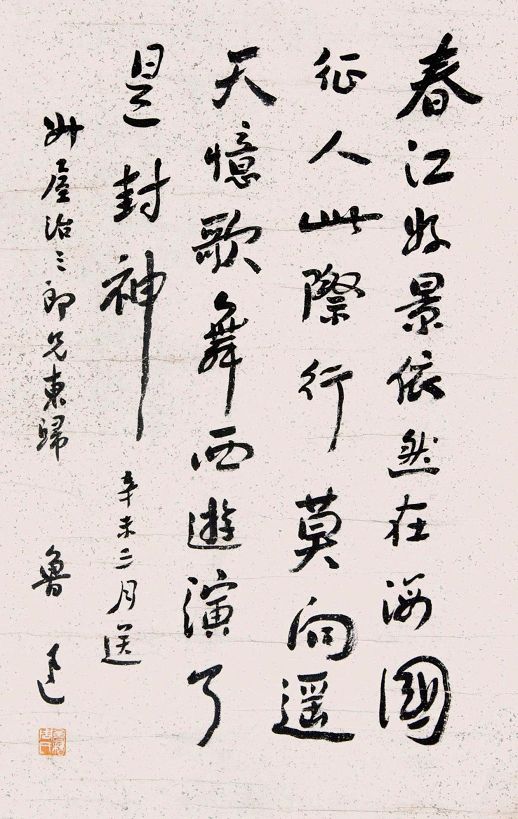 春江好景依然在海國
征人此際行莫向遥
天憶歌舞西遊演了
是封神 辛未二月送
升屋治三郎兄東歸 魯迅